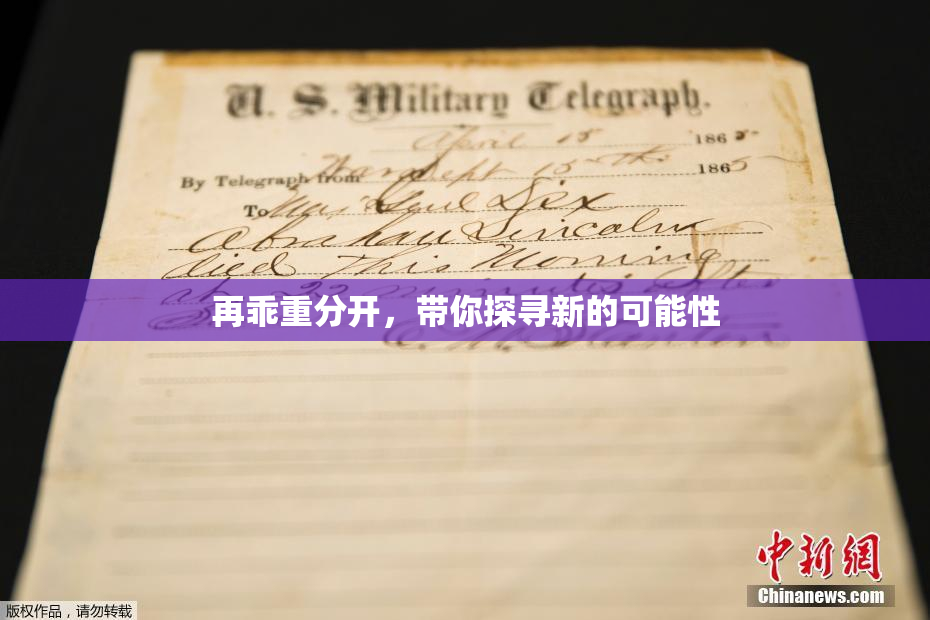 U. S. Military Telegraph.
April 15 1865
By Telegraph from War Dept 15th 1865
To Maj Genl Dix
Abraham Lincoln
died This Morning
at 22 minutes after
再乖重分开，带你探寻新的可能性
E. M. Stanton
中新網
Chinanews.com
版权作品，请勿转载